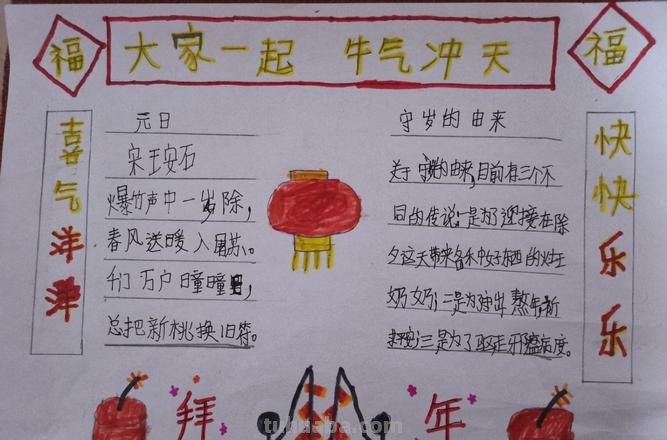 福 大家一起 牛气冲天 福
喜气洋洋
元日
宋王安石
爆竹声中一岁除，
春风送暖入屠苏。
千门万户曈曈日，
总把新桃换旧符。
守岁的由来
关于守岁的由来，目前有三个不
同的传说：一是为了迎接在除
夕这天带来各种好东西的灶王
奶奶；二是为
三是为了驱走邪瘟病疫。
快快乐乐
拜年
tukuaba.com